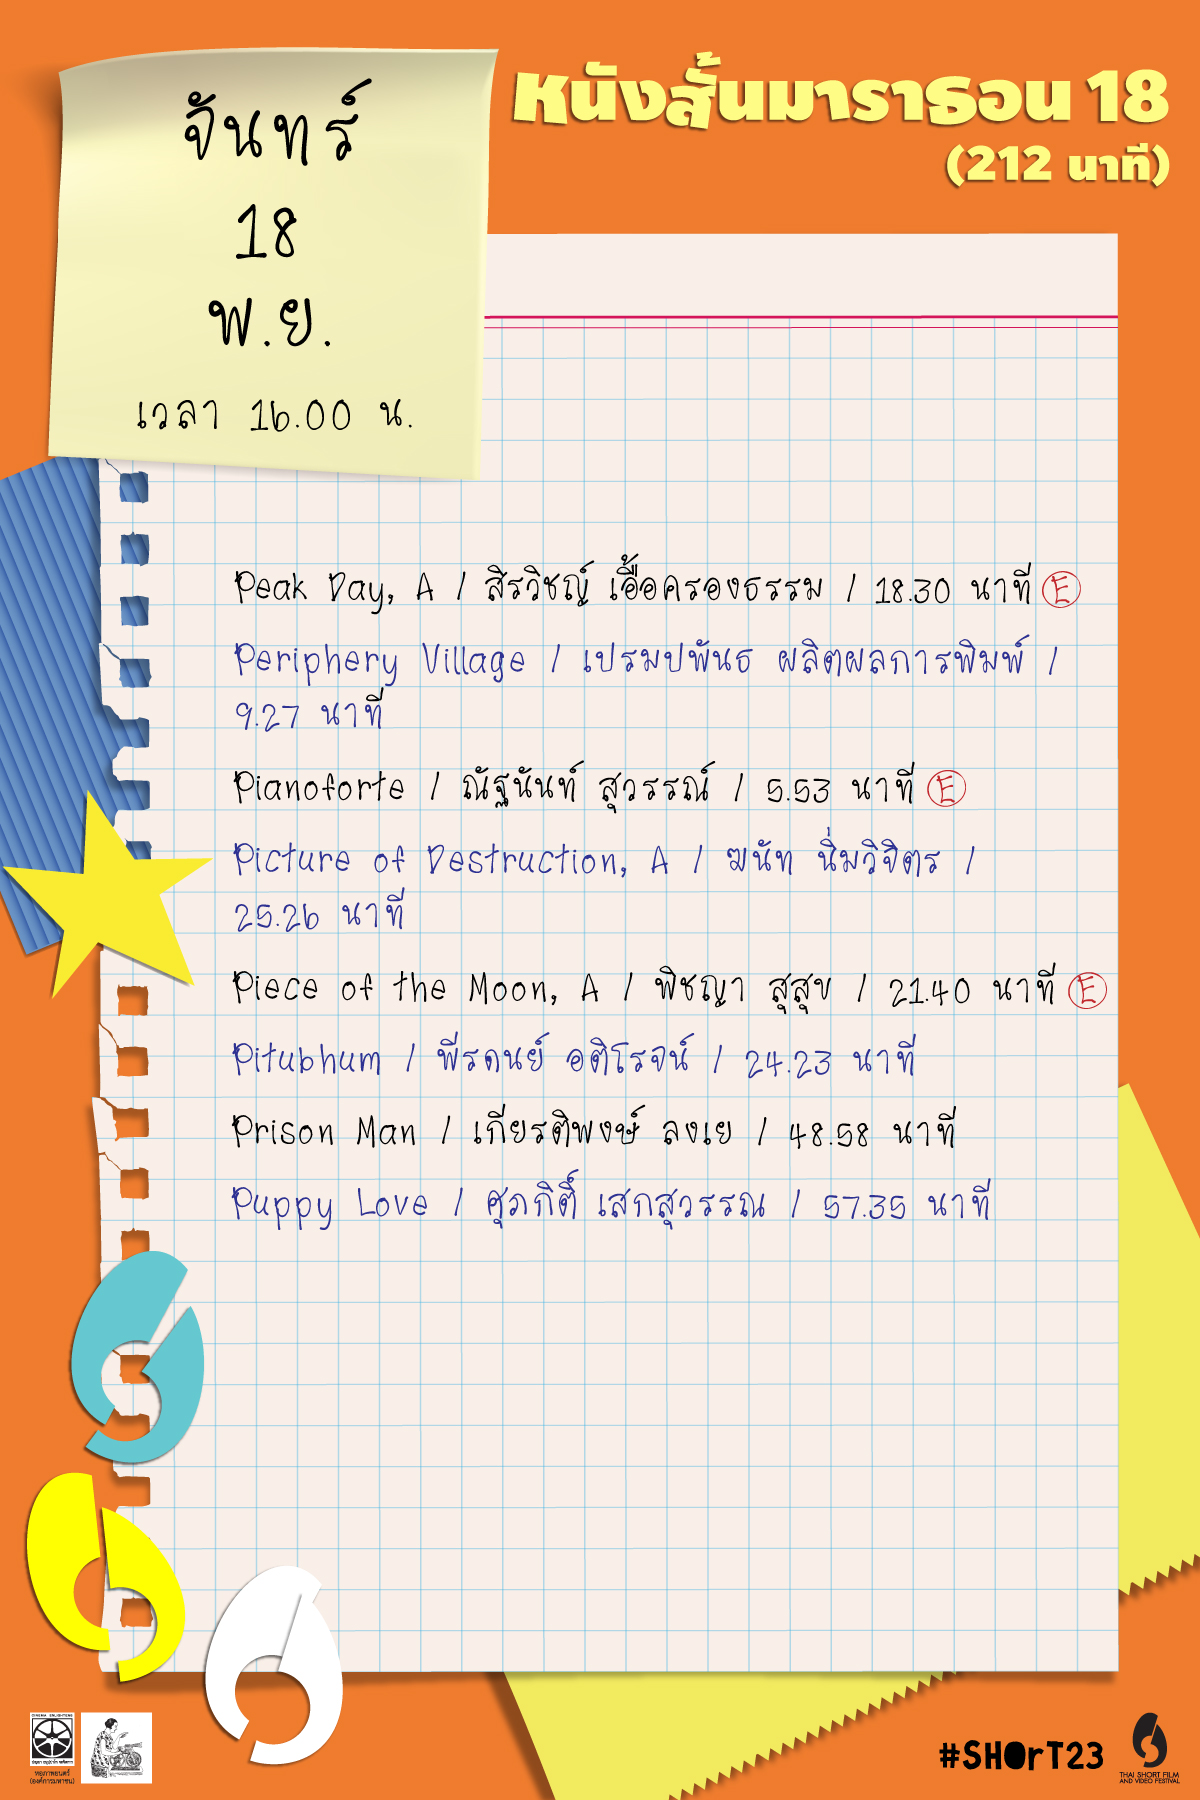 จันทร์
18
พ.ย.
เวลา 16.00 น.
หนังสั้นมาราธอน 18
(212 นาที)
Peak Day, A / สิรวิชญ์ เอื้อครองธรรม / 18.30 นาที E
Periphery Village / เปรมปพันธ ผลิตผลการพิมพ์ /
9.27 นาที
Pianoforte / ณัฐนันท์ สุวรรณ์ / 5.53 นาที E
Picture of Destruction, A / ฆนัท นิ่มวิจิตร /
25.26 นาที
Piece of the Moon, A / พิชญา สุสุข / 21.40 นาที E
Pitubhum / พีรดนย์ อติโรจน์ / 24.23 นาที
Prison Man / เกียรติพงษ์ ลงเย / 48.58 นาที
Puppy Love / ศุภกิติ์ เสกสุวรรณ / 57.35 นาที
หอภาพยนตร์
(องค์การมหาชน)
#SHOrT23
THAI SHORT FILM
AND VIDEO FESTIVAL